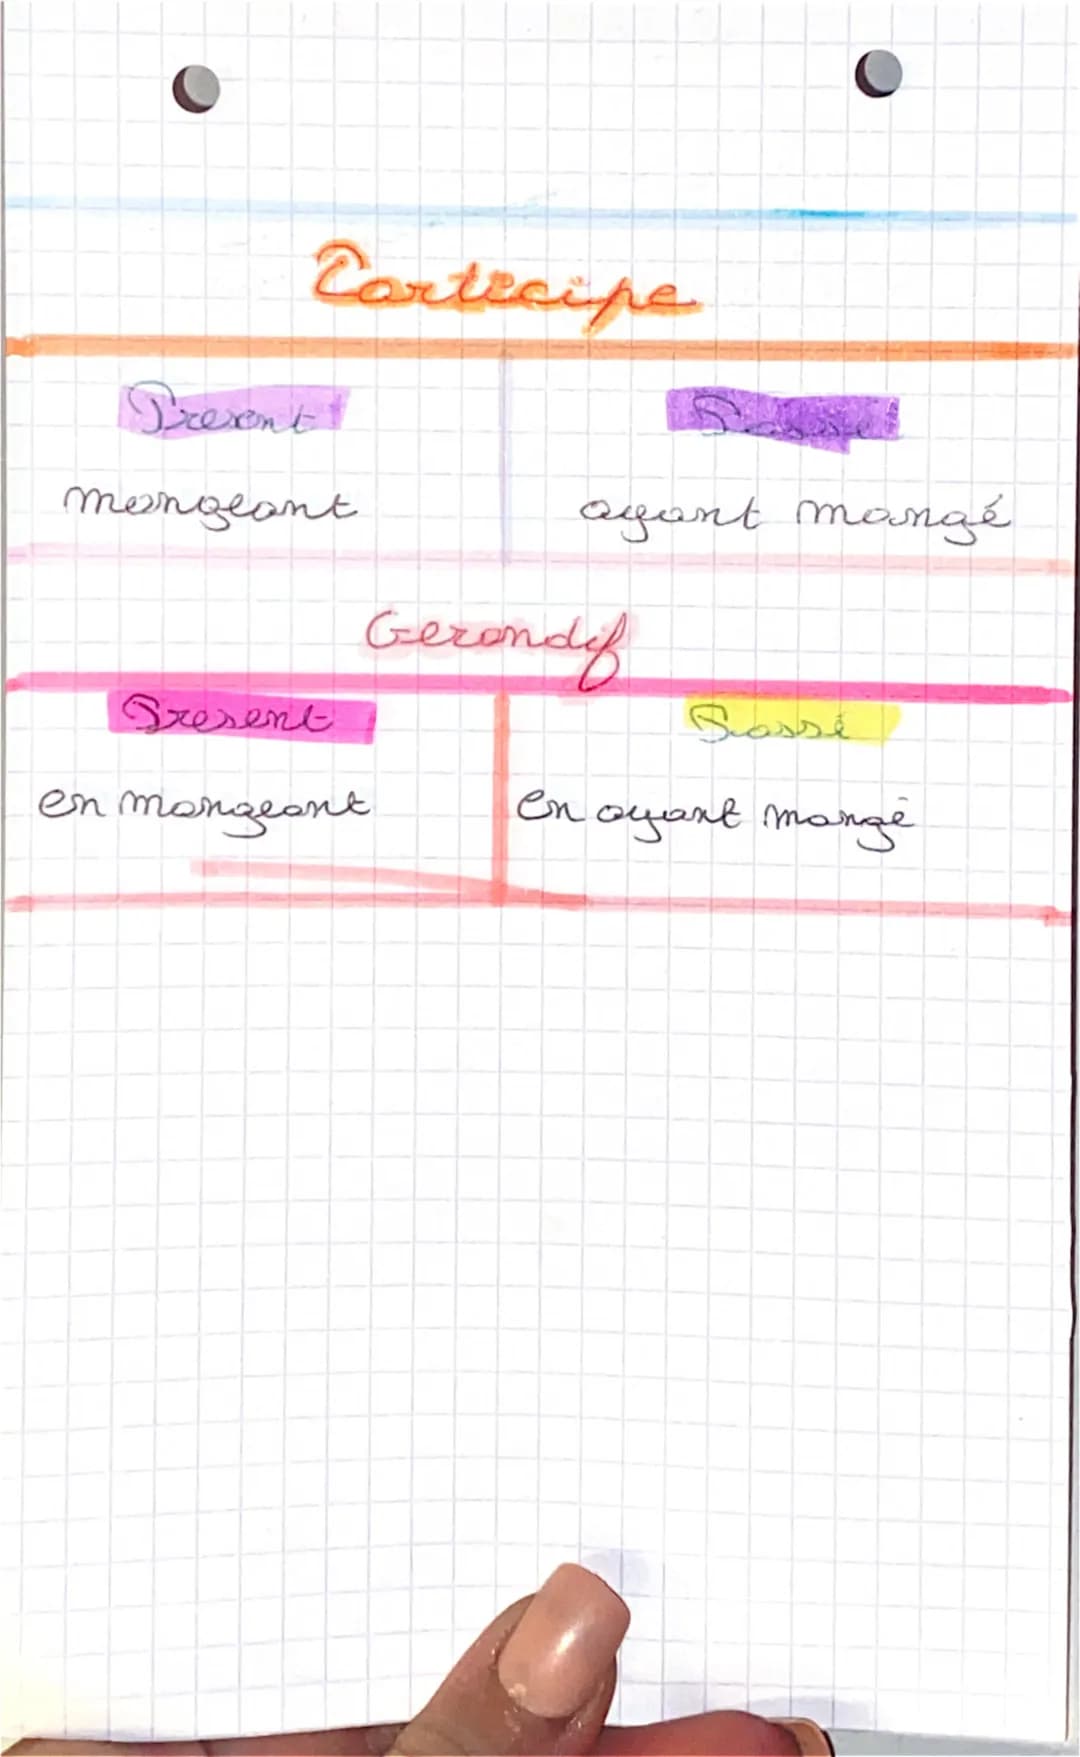 Participe
Present Passé
mangeant ayant mangé
Gerondif
Present Passé
en mangeant en ayant mangé